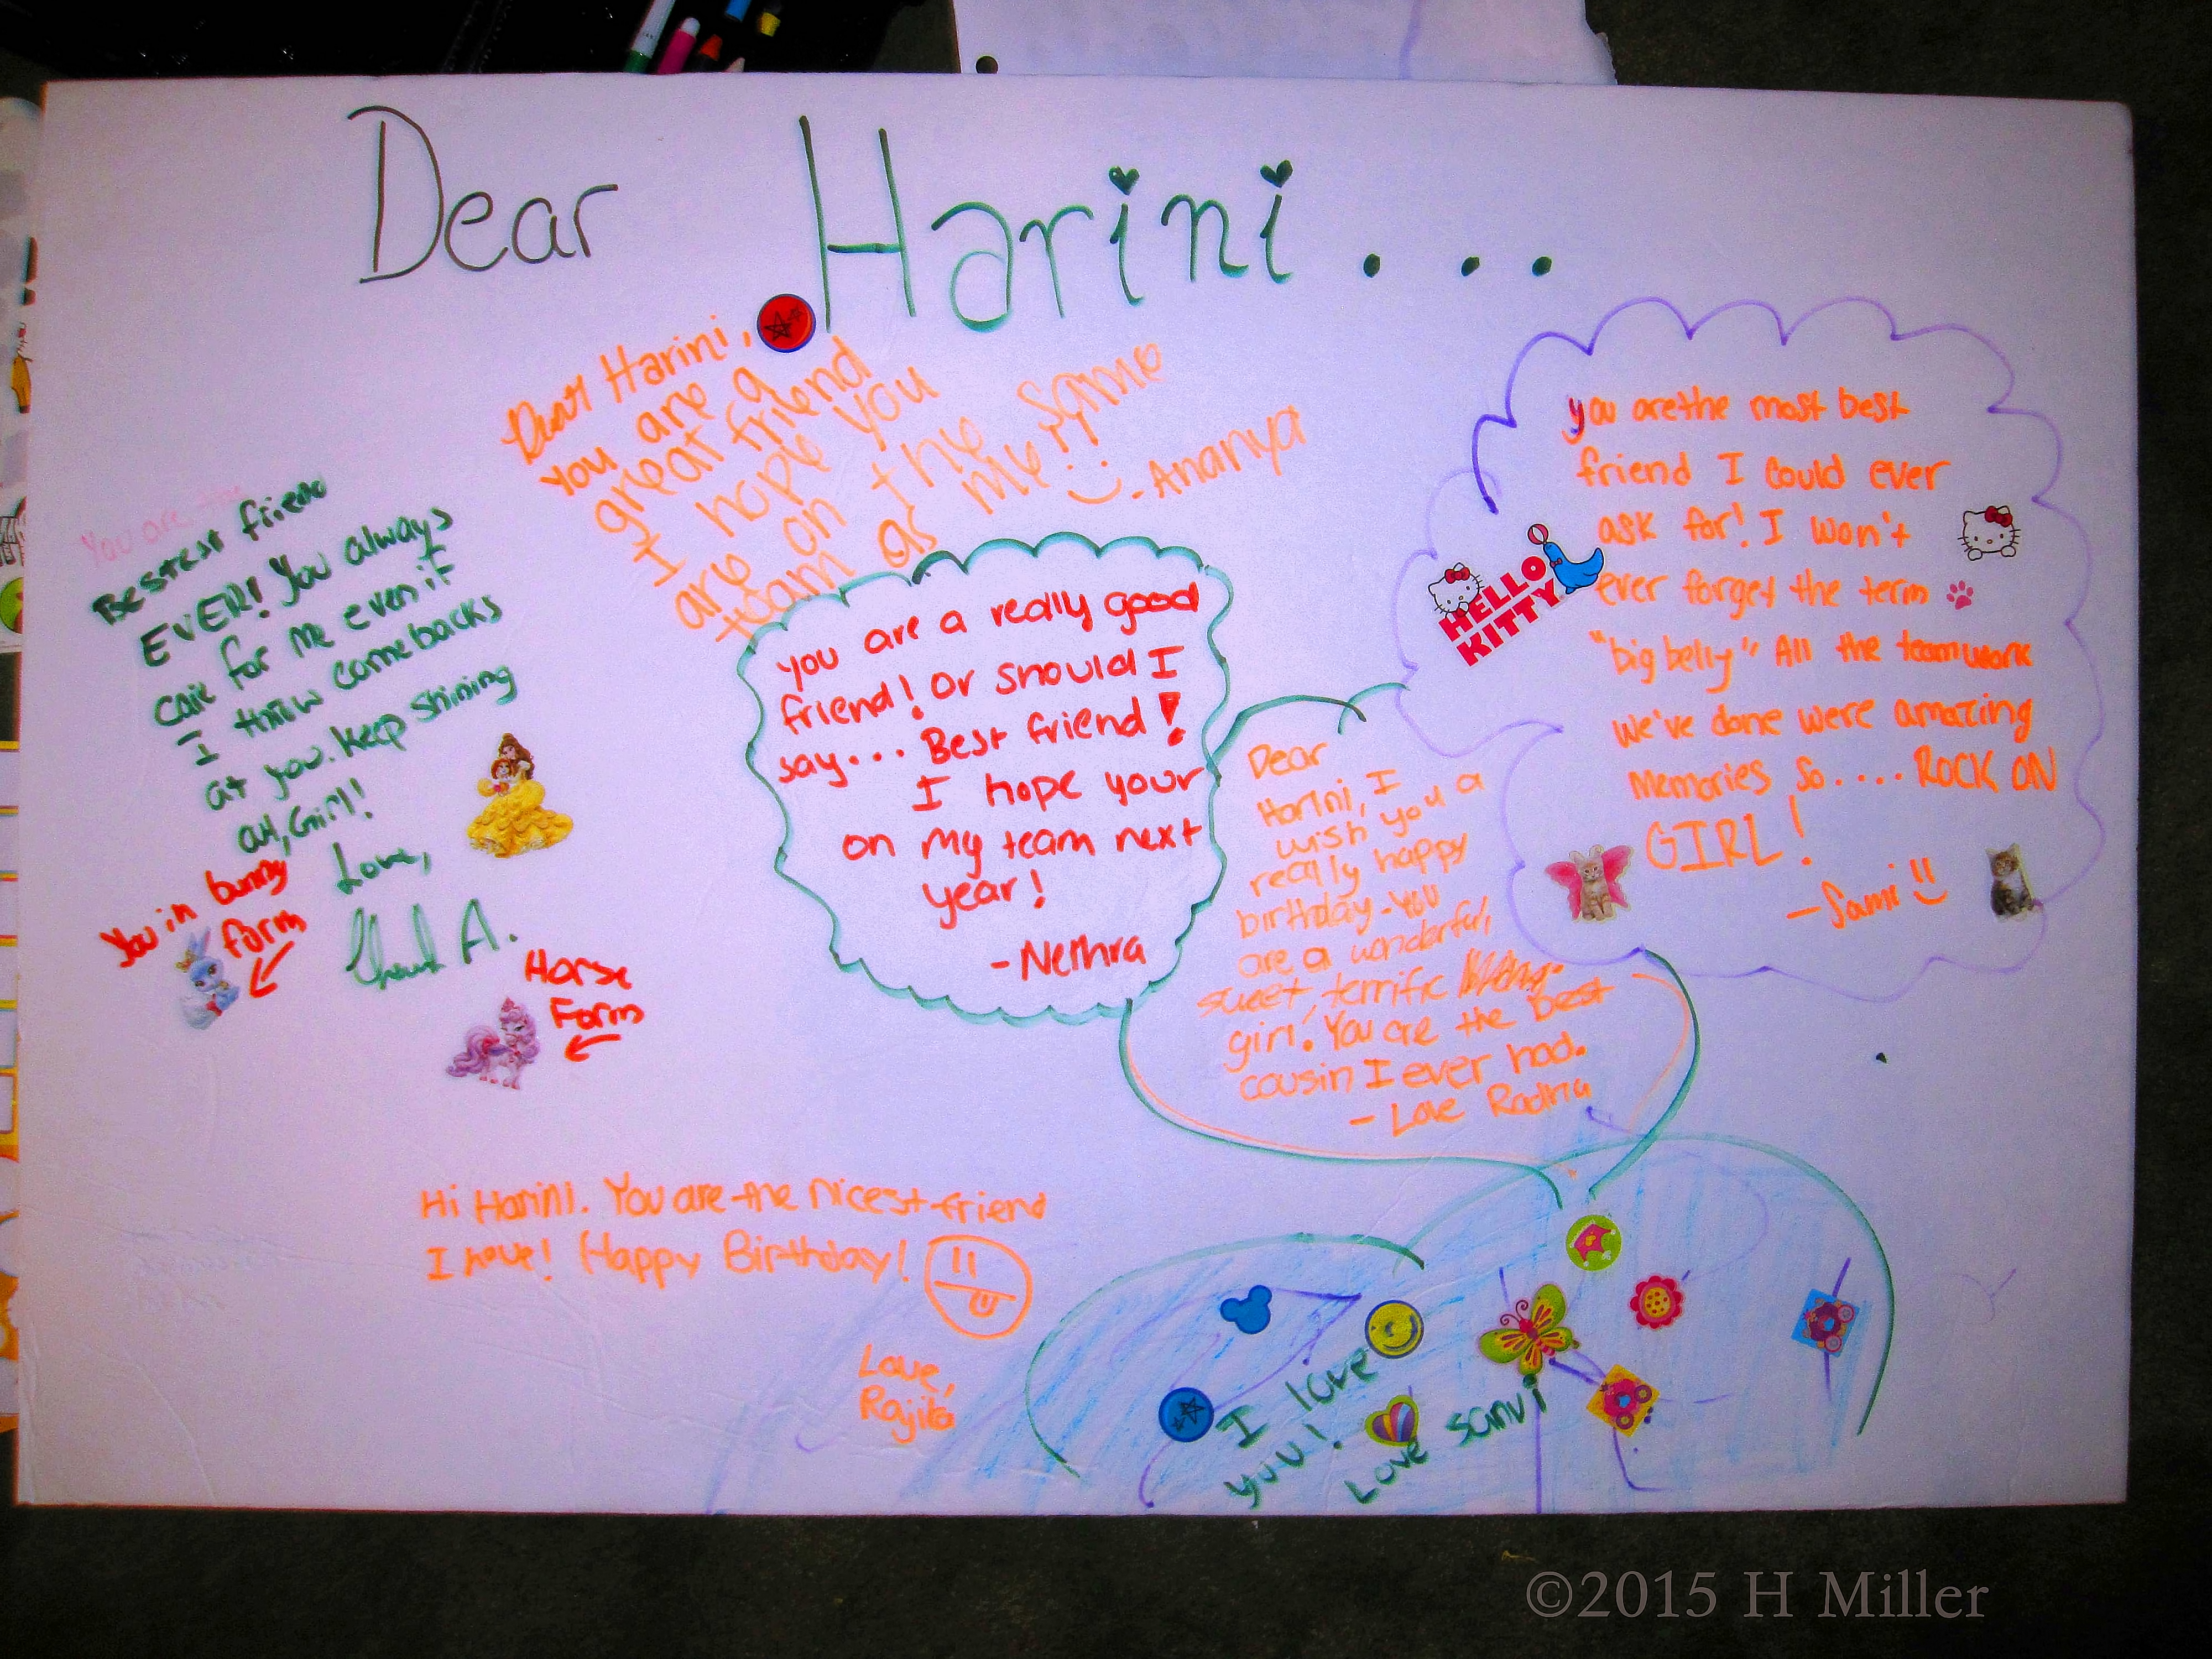 Dear Harini...
Dear Harini,
You are a
great friend
I hope you
are on the same
team as me!!
- Ananya
You are the
Bestest friend
EVER! You always
care for me even if
I throw comebacks
at you. Keep shining
Girl!
Love,
A.
You in bunny
form
Horse
Form
you are a really good
friend! Or should I
say... Best friend!
I hope your
on my team next
year!
- Nethra
you are the most best
friend I could ever
ask for! I won't
ever forget the term
"big belly" All the teamwork
we've done were amazing
memories so.... ROCK ON
GIRL!
- Sami
HELLO
KITTY
Dear
Harini, I
wish you a
really happy
birthday - You
are a wonderful,
sweet, terrific
girl! You are the best
cousin I ever had.
- Love Radha
Hi Harini. You are the nicest friend
I have! Happy Birthday!
Love,
Rajita
I love
you!
Love Sanvi
©2015 H Miller